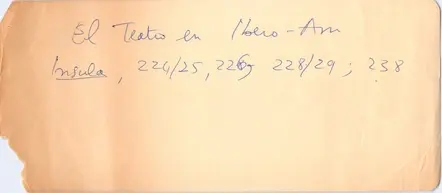 El Teatro en Ibero-Am
Insula, 224/25, 226, 228/29; 238